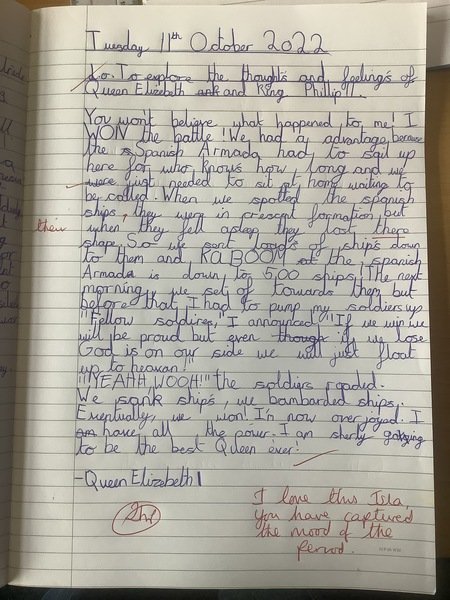 Tuesday 11th October 2022
L.o. To explore the thoughts and feelings of
Queen Elizabeth and and King Phillip II.
You won't believe what happened to me! I
WON the battle! We had a advantage because
the Spanish Armada had to sail up
here for who knows how long and we
were just needed to sit at home waiting to
be called. When we spotted the spanish
ships, they were in cresent formation but
their
when they fell asleep they lost there
shape. So we sent loads of ships down
to them and KABOOM at the spanish
Armada is down to 500 ships! The next
morning, we set of towards them but
before that I had to pump my soldiers up
"Fellow soldires," I announced "If we win we
will be proud but even though if we lose
God is on our side we will just float
up to heavan!"
"YEAHH, WOOH!" the soldiers roaded.
We sank ships, we bombarded ships.
Eventually, we won! I'm now over joyed. I
am have all the power. I am sherly going
to be the best Queen ever!
-Queen Elizabeth I
I love this Isla,
you have captured
the mood of the
period.